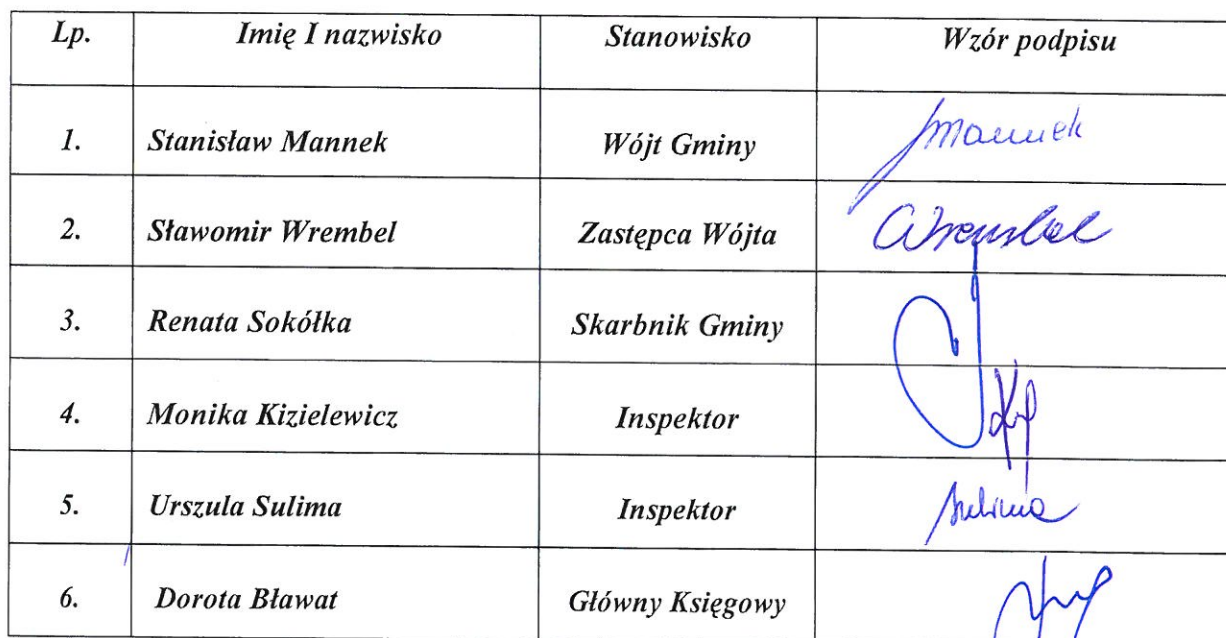 Lp. Imię I nazwisko Stanowisko Wzór podpisu
1. Stanisław Mannek Wójt Gminy Mannek
2. Sławomir Wrembel Zastępca Wójta Wrembel
3. Renata Sokółka Skarbnik Gminy
4. Monika Kizielewicz Inspektor
5. Urszula Sulima Inspektor Sulima
6. Dorota Bławat Główny Księgowy